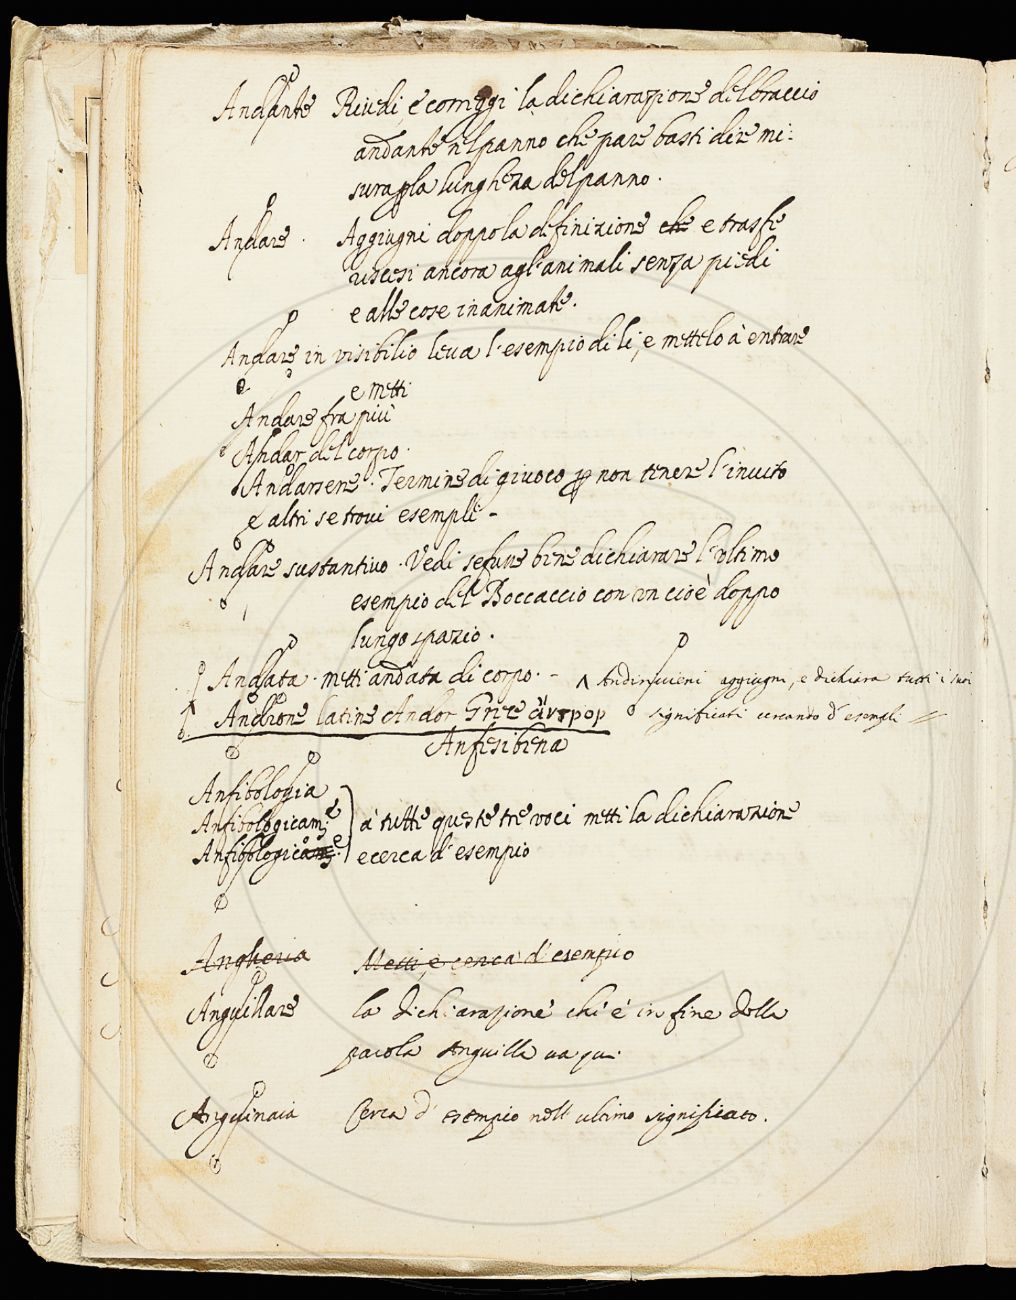 Andante Riuedi, e correggi la dichiarazione del braccio
andante nel panno che pare basti dire mi-
sura p la lunghezza del panno.
Andare. Aggiugni doppo la definizione che e trasfe
riscesi ancora agl'animali senza piedi
e alle cose inanimate.
Andare in visibilio leua l'esempio di li, e mettelo à entrare
e metti
Andare fra più
Andar del corpo.
Andarsene. Termine di giuoco p non tenere l'inuito
e altri se troui esempli -
Andare sustantiuo. Vedi se fusse bene dichiarare l'vltimo
esempio del Boccaccio con vn cioè doppo
lungo spazio.
Andata. metti andata di corpo. -
^ Andirivieni aggiugni, e dichiara tutti i suoi
significati cercando d'esempli
Androne latine Andòr Grece
Anfesibena
Anfibologia
Anfibologicam.e
Anfibologic
à tutte queste tre voci metti la dichiarazione
e cerca d'esempio
Angheria Metti, e cerca d'esempio
Anguillare la dichiarazione ch'è in fine della
parola Anguilla ua qui
Anguinaia Cerca d'esempio nell'ultimo significato.